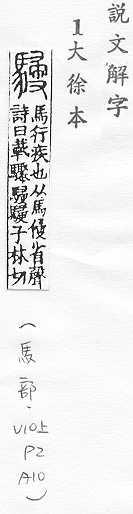 説文解字
1大徐本
馬行疾也从馬侵省聲
詩曰載驟駸駸子林切
(馬部·
V10上
P2
A10)